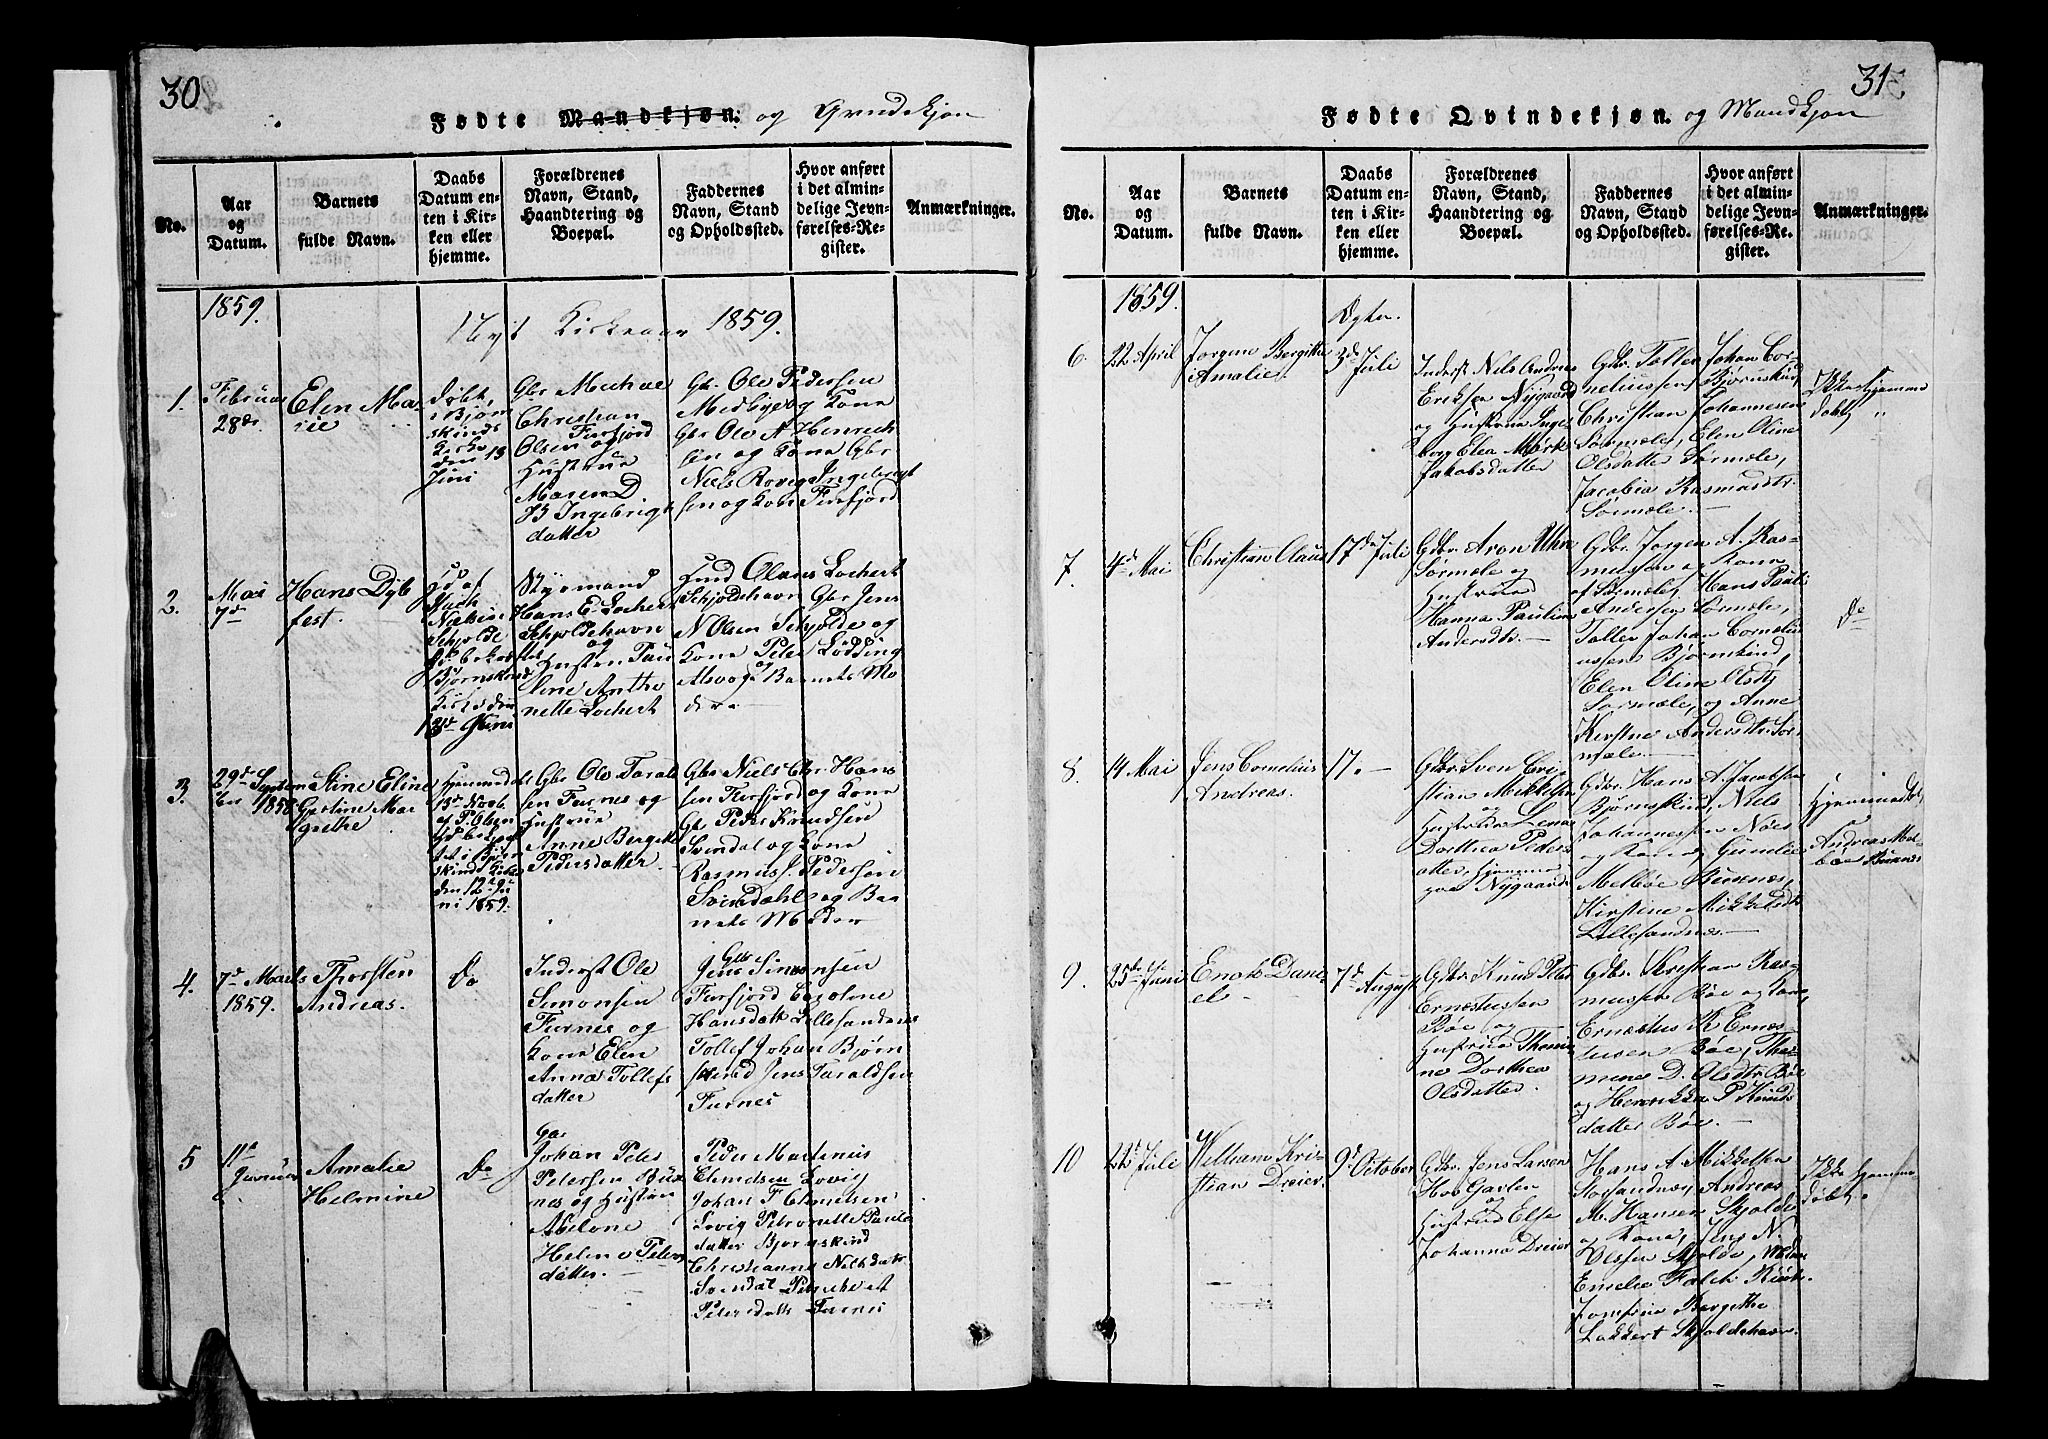 30
Fødte Mandkjøn. og Qvindekjøn
No.
Aar
og
Datum.
Barnets
fulde Navn.
Daabs
Datum en-
ten i Kir-
ken eller
hjemme.
Forældrenes
Navn, Stand,
Haandtering og
Boepæl.
Faddernes
Navn, Stand
og Opholdssted.
Hvor anført
i det almin-
delige Jevn-
førelses-Re-
gister.
Anmærkninger.
1859.
Nyt Kirkeaar 1859.
1.
Februar
28de
Elen Ma-
rie
døbt
i Bjørn
skinds
Kirke
den 13
Juni
Gbr Mechae
Christian
Olsen Furfjord
og
Hustrue
Maren D
B Ingebrigt
datter
Gbr. Ole Pedersen
Medbye og Kone
Gbr Ole A Henrich
sen og Kone Gbr
Niels Rovig Ingebrigt
sen og Kone Furfjord
2.
Mai
7de
Hans Dyb
fest.
Skjolde
Bjørnskind
Kirke den
13de Juni
Styrmand
Hans E. Lochert
Schjoldehavn
og
Hustru Pau
line Antho
nette Lochert
Knud Olaus Lochert
Schjoldehavn Gbr Jens
N Olsen Schjolde og
Kone Peter Lødding
Alsvog og Barnets Mo
der
3.
29de Septem
ber 1858
Stine Eline
Gjertine Mar
grethe
Hjemmedøbt
af P. Olsen
i Bjørn
skinds Kirke
den 12te Ju
ni 1859.
Gbr Ole Tarald
sen Furnes og
Hustrue
Anne Bergitte
Pedersdatter
Gbr Niels Chr. Hans
sen Furfjord og Kone
Gbr Peder Knudsen
Svindal og Kone
Rasmus J. Pedersen
Svindahl og Bar
nets Moder
4.
7de Marts
1859.
Thorsten
Andreas.
Do
Inderst Ole
Simonsen
Furnes og
Kone Elen
Anna Tollefs
datter
Gbr
Jens Simonsen
Furfjord Caroline
Hansdatt Lillesandnes
Tollef Johan Bjørn
skind Jens Taraldsen
Furnes
5
11te
Januar
Amalie
Helmine
Do
Gbr
Johan Peter
Petersen Bux
nes og Hustru
Abelone
Helene Peters
datter.
Peder Martinus
Elmelsen Lovig
Johan F Elmelsen
Lovig Petronelle Pauls
datter Bjørnskind
Christianna Nilsdatr
Svindal
Petersdatt Furnes
31
Fødte Qvindekjøn. og Mandkjøn
No.
Aar
og
Datum.
Barnets
fulde Navn.
Daabs
Datum en-
ten i Kir-
ken eller
hjemme.
Forældrenes
Navn, Stand,
Haandtering og
Boepæl.
Faddernes
Navn, Stand
og Opholdssted.
Hvor anført
i det almin-
delige Jevn-
førelses-Re-
gister.
Anmærkninger.
1859.
6.
22 April
Jørgine Bergitte
Amalie
3de Juli
Inderst Nils Andreas
Eriksen Nygaard
og Hustrue Inge
borg Elea Mørk
Jakobsdatter
Gbr. Tollev Johan Cor-
neliussen Bjørnskind,
Christian Johannesen
Sørmæle, Elen Oline
Olsdatter Sørmæle,
Jacobia Rasmusdtr.
Sørmæle.
Ikke hjemme
døbt
7.
4de Mai
Christian Claus
17de Juli
Gdbr. Aron Uhre
Sørmæle og
Hustrue
Hanna Pauline
Andersdtr.
Gdbr. Jørgen A. Ras-
mussen og Kone
af Sørmæle, Hans Pauli
Andersen Sørmæle,
Tollev Johan Corneli-
ussen Bjørnskind,
Elen Oline Olsdtr
Sørmæle, og Anne
Kirstine Andersdtr Sør-
mæle.
Do
8.
14 Mai
Jens Cornelius
Andreas.
17. —
Gdbr. Sven Cri-
stian Mikkelsen
og
Hustrue Lena
Dorthea Peders
datter,
Nygaard
Gdbr. Hans A. Jacobsen
Bjørnskind, Niels
Johannessen Nøes
og Kone, Gunelie
Melbøe Buxnes,
Kirstine Mikkelsdtr
Lillesandnes.
Hjemmedøbt,
Andreas Mel-
bøe Buxnes
9.
25de Juni
Enok Dani-
el
7de August
Gdbr. Knud Peter
Ernæstusen
Bøe og
Hustrue Thomi-
ne Dorthea
Olsdatter
Gdbr. Kristian Ras-
mussen Bøe og Kone,
Ernæstus K Ernæs-
tusen Bøe, Tho-
mine D. Olsdtr Bøe
og Henrikka P Knuds
datter Bøe.
10
22de Juli
William Kri-
stian Dreier.
9de October
Gdbr. Jens Larsen
Hos Garlen
og
Hustrue Else
Johanna Dreier
Hans A Mikkelsen
Storsandnes, Andreas
M. Hansen Skjolde
og Kone, Jens N.
Olsen Skjolde, Madam
Emelie Falch
Jomfrue Bergithe
Lokkert Skjoldehavn.
Ikke hjemme
døbt.